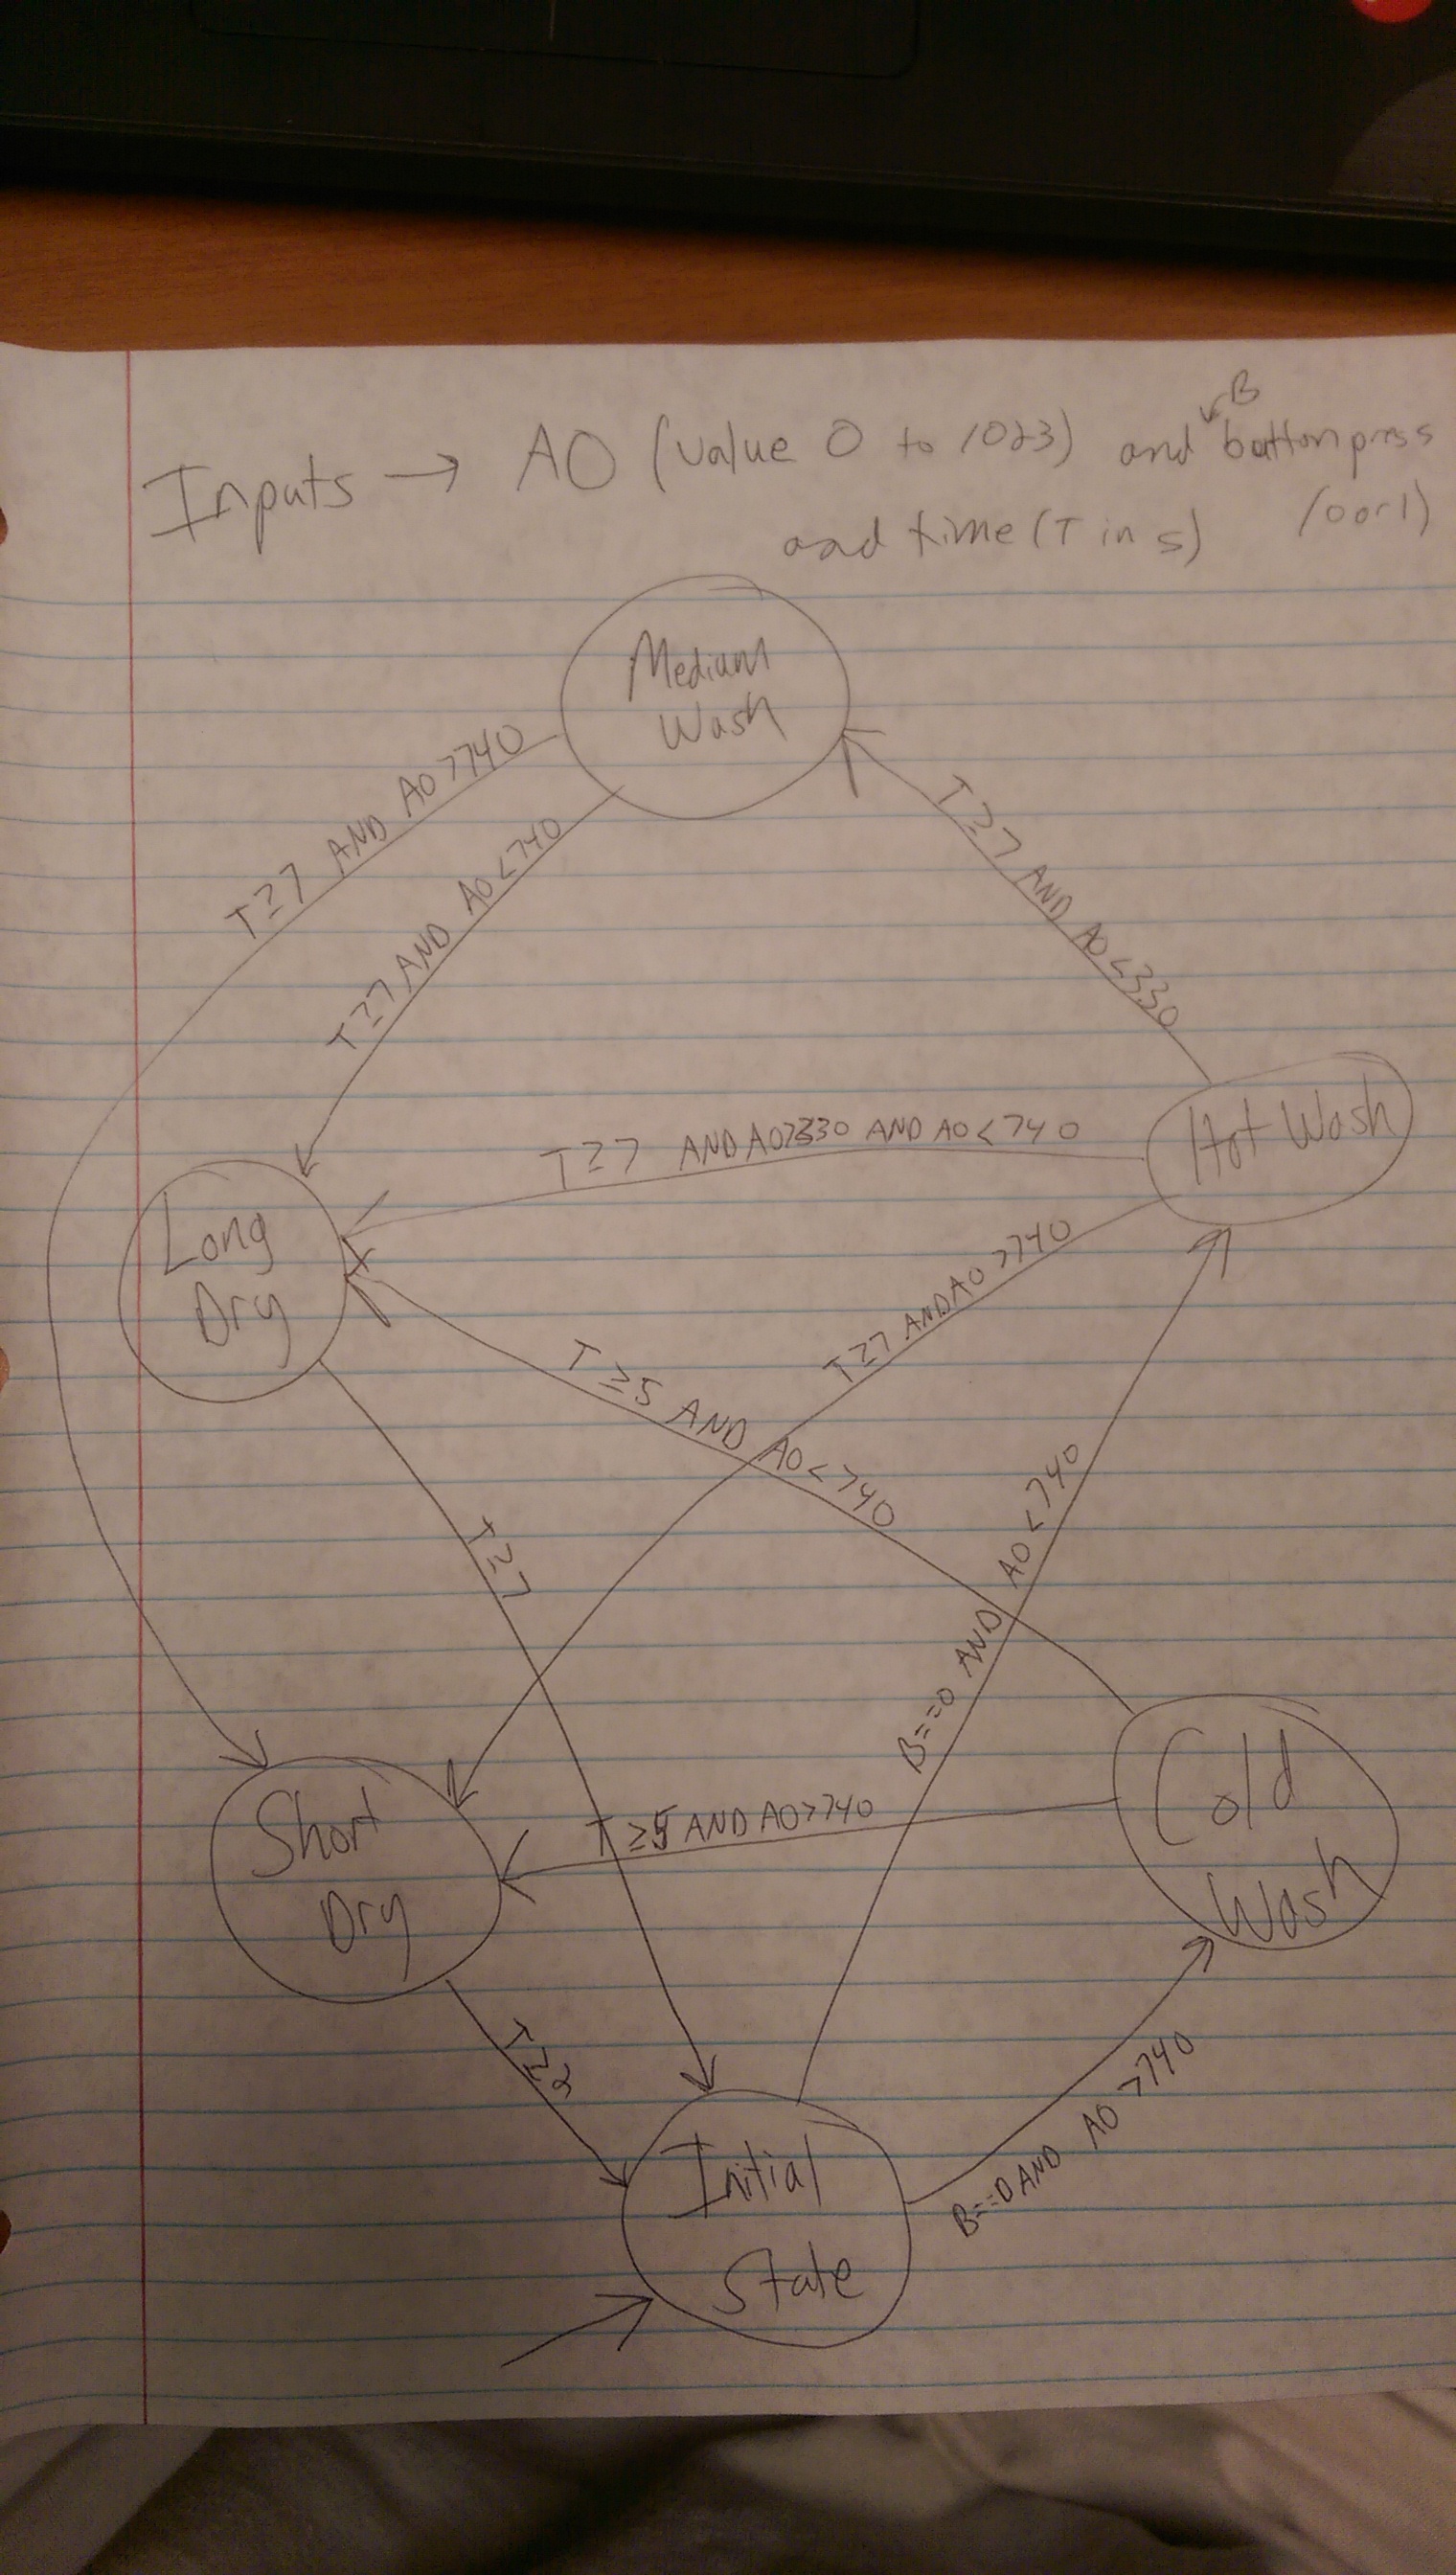 B
Inputs → A0 (value 0 to 1023) and button press
and time (T in s) (0 or 1)
Medium
Wash
T≥7 AND A0>740
T≥7 AND A0<740
T≥7 AND A0<330
Hot Wash
T≥7 AND A0>330 AND A0<740
Long
Dry
T≥7 AND A0>740
T≥5 AND A0<740
B==0 AND A0<740
T≥7
Cold
Wash
Short
Dry
T≥5 AND A0>740
T≥2
B==0 AND A0>740
Initial
State